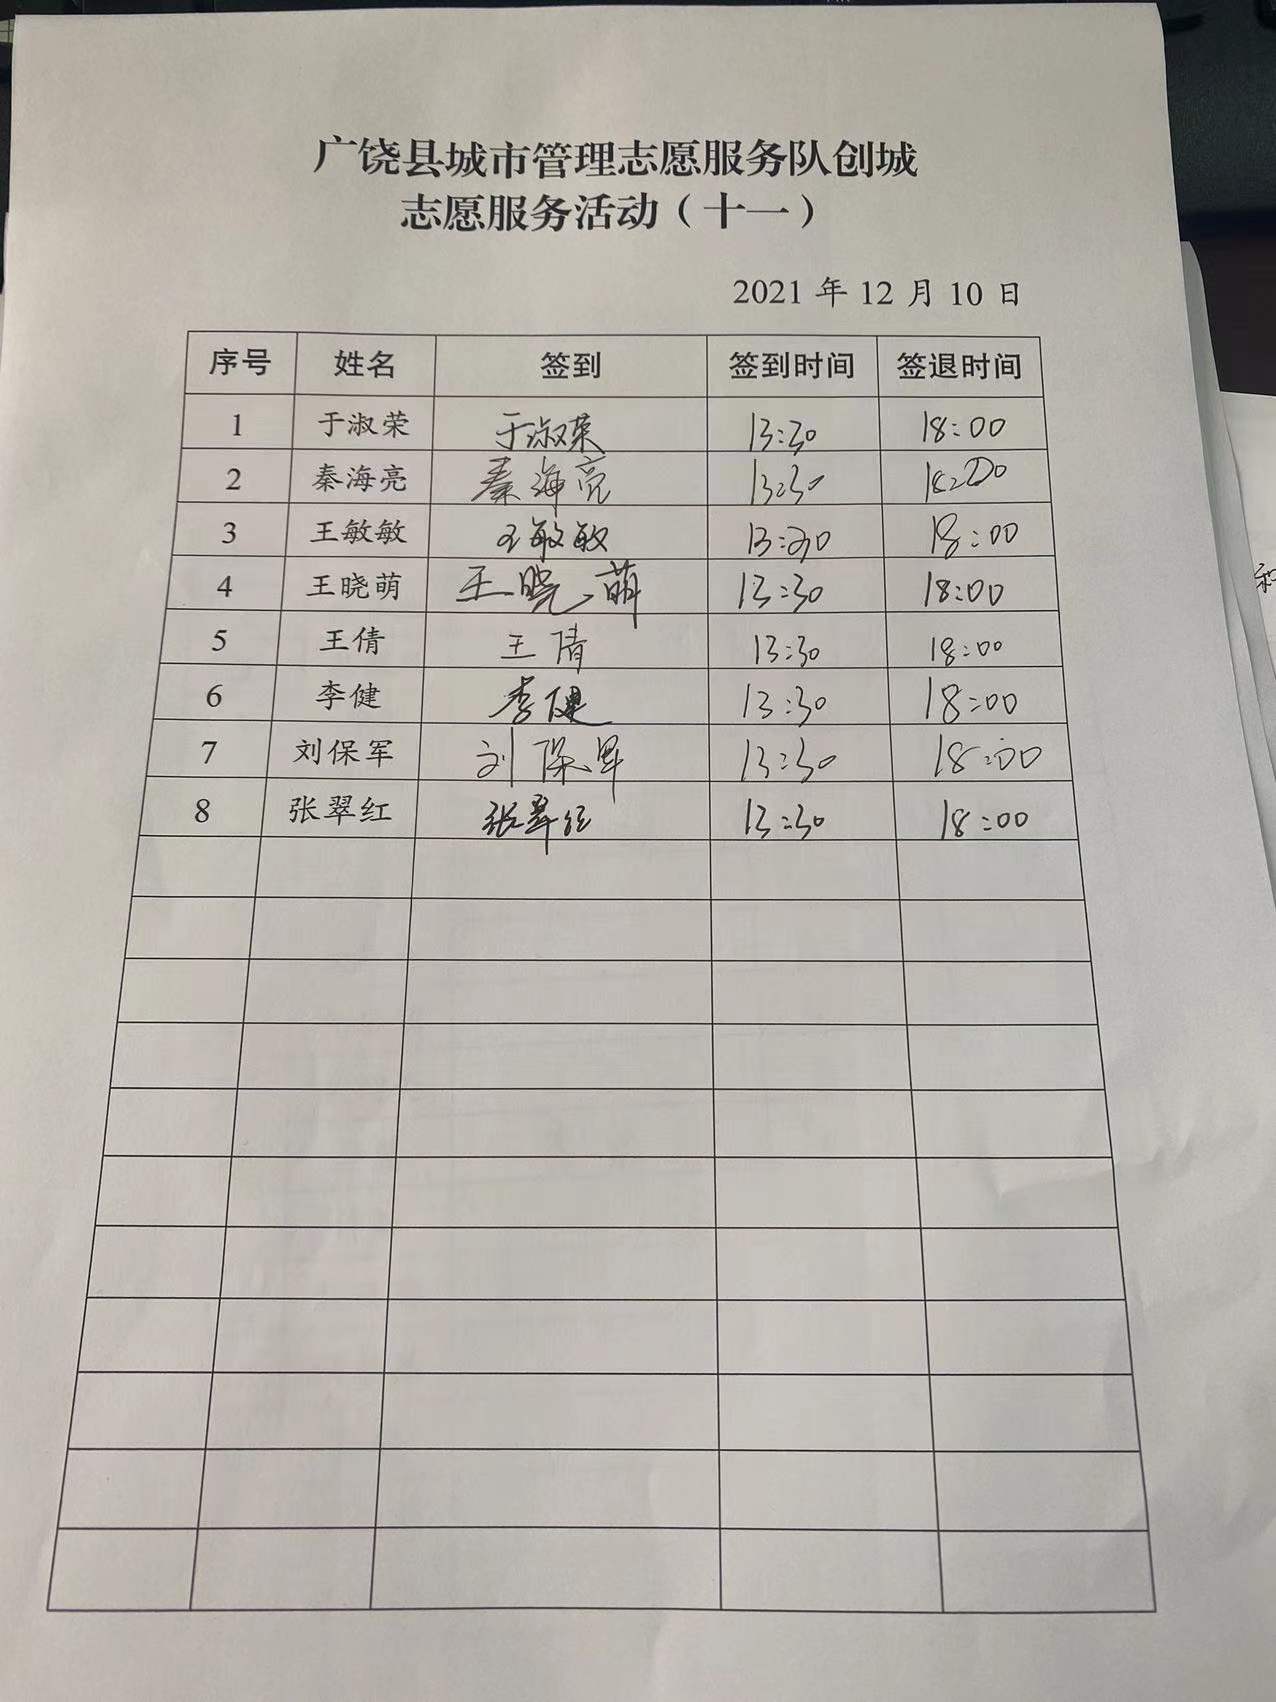 广饶县城市管理志愿服务队创城
志愿服务活动（十一）
2021 年 12 月 10 日
序号 姓名 签到 签到时间 签退时间
1 于淑荣 于淑荣 13:30 18:00
2 秦海亮 秦海亮 13:30 18:00
3 王敏敏 王敏敏 13:30 18:00
4 王晓萌 王晓萌 13:30 18:00
5 王倩 王倩 13:30 18:00
6 李健 李健 13:30 18:00
7 刘保军 刘保军 13:30 18:00
8 张翠红 张翠红 13:30 18:00